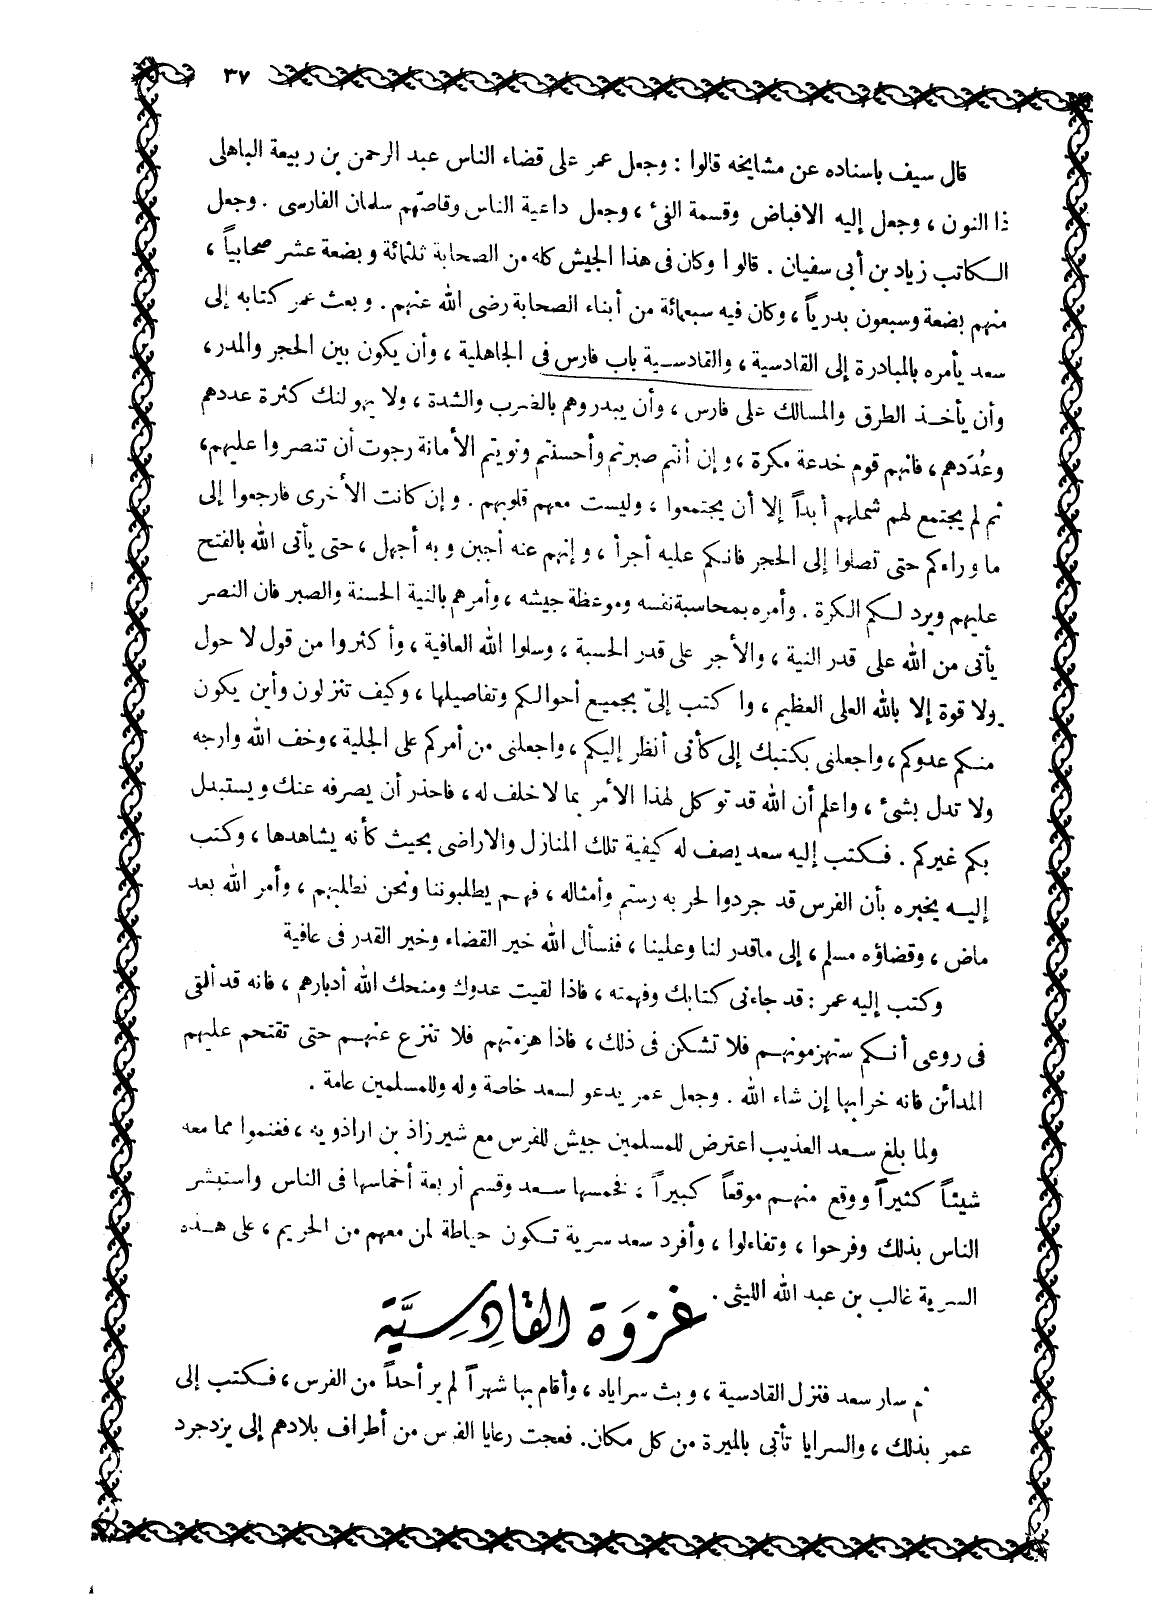 ٣٧
قال سيف باسناده عن مشايخه قالوا : وجعل عمر على قضاء الناس عبد الرحمن بن ربيعة الباهلى
ذا النون ، وجعل إليه الاقباض وقسمة الفىء ، وجعل داعية الناس وقاصّهم سلمان الفارسى . وجعل
الكاتب زياد بن أبى سفيان . قالوا وكان فى هذا الجيش كله من الصحابة ثلثمائة وبضعة عشر صحابياً ،
منهم بضعة وسبعون بدرياً ، وكان فيه سبعمائة من أبناء الصحابة رضى الله عنهم . وبعث عمر كتابه إلى
سعد يأمره بالمبادرة إلى القادسية ، والقادسية باب فارس فى الجاهلية ، وأن يكون بين الحجر والمدر ،
وأن يأخذ الطرق والمسالك على فارس ، وأن يبدروهم بالضرب والشدة ، ولا يهولنك كثرة عددهم
وعُدَدهم ، فانهم قوم خدعة مكرة ، وإن أنتم صبرتم وأحسنتم ونويتم الأمانة رجوت أن تنصروا عليهم ،
ثم لم يجتمع لهم شملهم أبداً إلا أن يجتمعوا ، وليست معهم قلوبهم . وإن كانت الأخرى فارجعوا إلى
ما وراءكم حتى تصلوا إلى الحجر فانكم عليه أجرأ ، وإنهم عنه أجبن وبه أجهل ، حتى يأتى الله بالفتح
عليهم ويرد لكم الكرة . وأمره بمحاسبة نفسه وموعظة جيشه ، وأمرهم بالنية الحسنة والصبر فان النصر
يأتى من الله على قدر النية ، والأجر على قدر الحسبة ، وسلوا الله العافية ، وأكثروا من قول لا حول
ولا قوة إلا بالله العلى العظيم ، واكتب إلىّ بجميع أحوالكم وتفاصيلها ، وكيف تنزلون وأين يكون
منكم عدوكم ، واجعلنى بكتبك إلى كأنى أنظر إليكم ، واجعلنى من أمركم على الجلية ، وخف الله وارجه
ولا تدل بشىء ، واعلم أن الله قد توكل لهذا الأمر بما لا خلف له ، فاحذر أن يصرفه عنك ويستبدل
بكم غيركم . فكتب إليه سعد يصف له كيفية تلك المنازل والاراضى بحيث كأنه يشاهدها ، وكتب
إليه يخبره بأن الفرس قد جردوا لحربه رستم وأمثاله ، فهم يطلبوننا ونحن نطلبهم ، وأمر الله بعد
ماض ، وقضاؤه مسلم ، إلى ماقدر لنا وعلينا ، فنسأل الله خير القضاء وخير القدر فى عافية
وكتب إليه عمر : قد جاءنى كتابك وفهمته ، فاذا لقيت عدوك ومنحك الله أدبارهم ، فانه قد ألقى
فى روعى أنكم ستهزمونهم فلا تشكن فى ذلك ، فاذا هزمتهم فلا تنزع عنهم حتى تقتحم عليهم
المدائن فانه خرابها إن شاء الله . وجعل عمر يدعو لسعد خاصة وله وللمسلمين عامة .
ولما بلغ سعد العذيب اعترض للمسلمين جيش للفرس مع شيرزاذ بن اراذويه ، فغنموا مما معه
شيئاً كثيراً ووقع منهم موقعاً كبيراً ، فخمسها سعد وقسم أربعة أخماسها فى الناس واستبشر
الناس بذلك وفرحوا ، وتفاءلوا ، وأفرد سعد سرية تكون حياطة لمن معهم من الحريم ، على هذه
السرية غالب بن عبد الله الليثى .
غزوة القادسيَّة
ثم سار سعد فنزل القادسية ، وبث سراياه ، وأقام بها شهراً لم ير أحداً من الفرس ، فكتب إلى
عمر بذلك ، والسرايا تأتى بالميرة من كل مكان . فعجت رعايا الفرس من أطراف بلادهم إلى يزدجرد